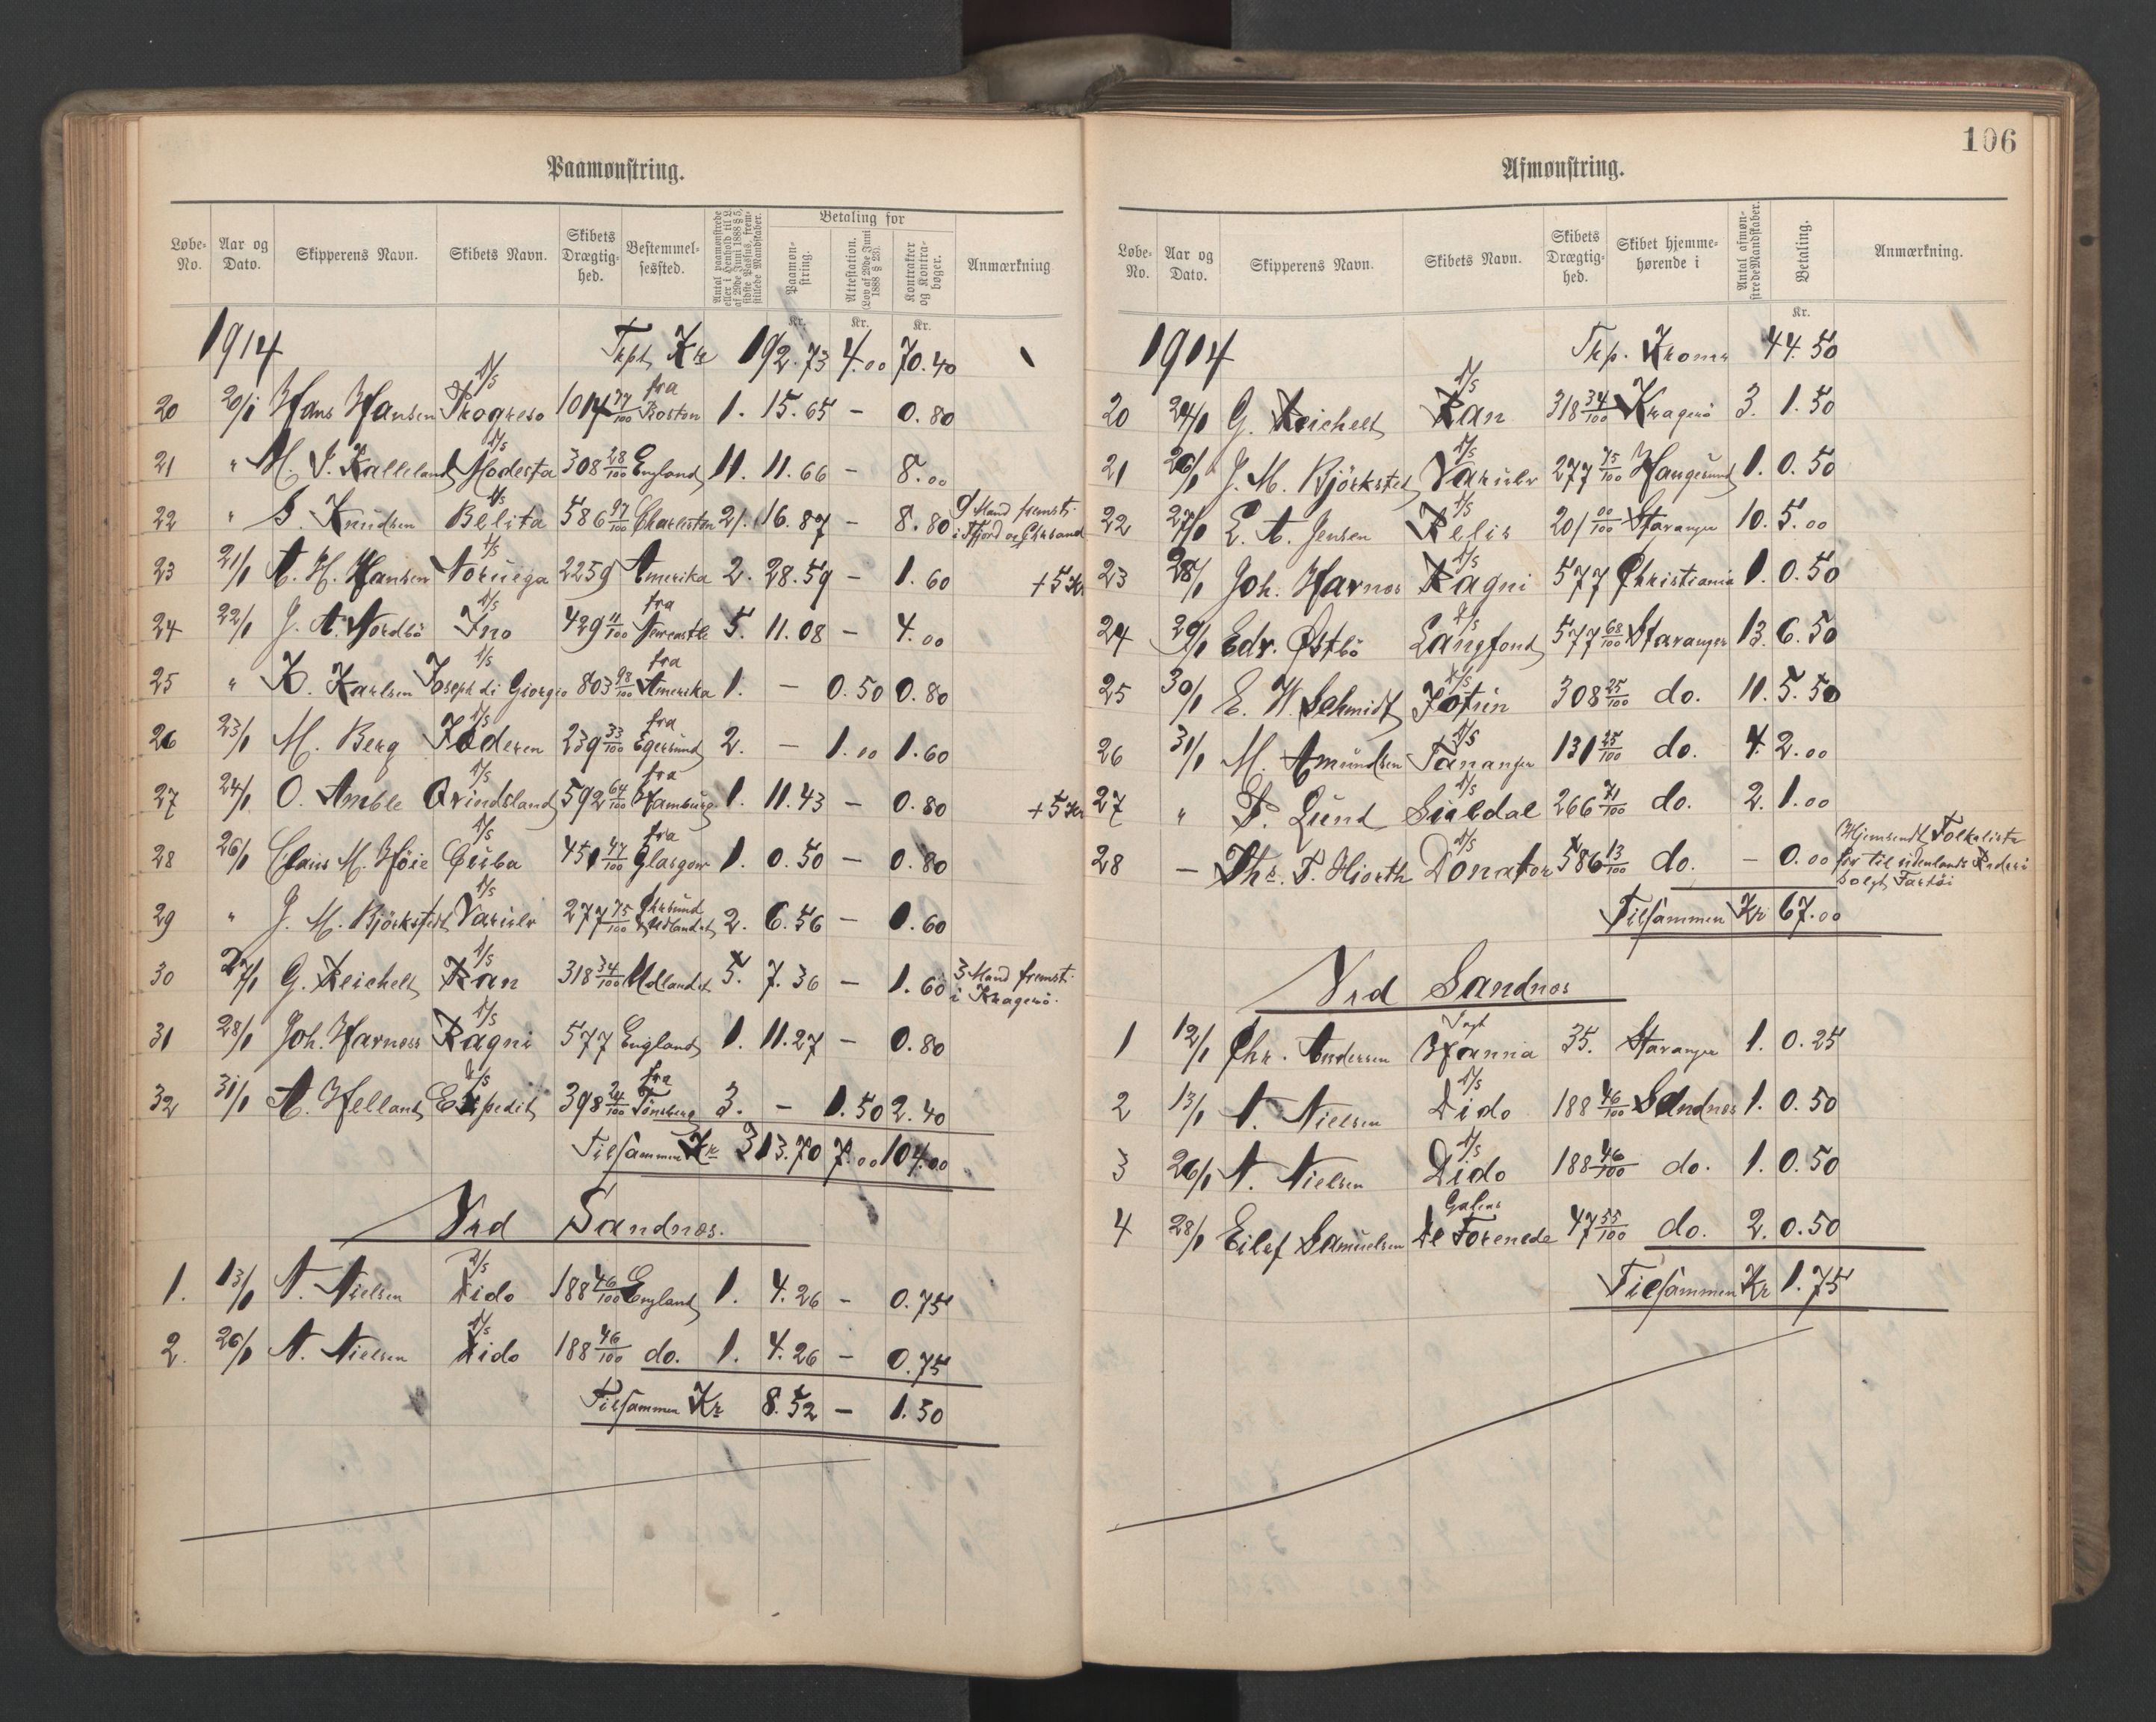 Paamønstring.
Løbe-No. Aar og Dato. Skipperens Navn. Skibets Navn. Skibets Drægtig-hed. Bestemmel-sessted. Antal paamønstrede eller i Henhold til L. af 29de Juni 1888 § 5, sidste Passus, frem-stillede Mandskaber. Betaling for Paamøn-string. Attestation. (Lov af 29de Juni 1888 § 23). Kontrakter og Kontra-bøger. Anmærkning
Kr. Kr. Kr.
1914 Trpt. Kr 192.73 4.00 70.40
20 20/1 Hans Hansen D/S Progreso 1017 77/100 fra Boston 1. 15.65 – 0.80
21 " M. J. Kalleland D/S Modesta 308 28/100 England 11. 11.66 – 8.00
22 " S. Knudsen D/S Belita 586 97/100 Charleston 21. 16.87 – 8.80 9 Mand fremst. i Ffjord og Chrsand
23 21/1 A. H. Hansen D/S Noruega 2259 Amerika 2. 28.59 – 1.60 + 5 Kr
24 22/1 J. A. Nordbö D/S Ino 429 11/100 fra Newcastle 5. 11.08 – 4.00
25 " K. Karlsen D/S Joseph di Giorgio 803 98/100 fra Amerika 1. – 0.50 0.80
26 23/1 M. Berg D/S Jæderen 239 33/100 fra Egersund 2. – 1.00 1.60
27 24/1 O. Amble D/S Qvindsland 592 64/100 fra Hamburg 1. 11.43 – 0.80 + 5 Kr
28 26/1 Claus M. Höie D/S Cuba 451 47/100 fra Glasgow 1. 0.50 – 0.80
29 " J. M. Björksted D/S Varulv 277 75/100 Chrsund Udlandet 2. 6.56 – 1.60
30 27/1 G. Reichelt D/S Ran 318 34/100 Udlandet 5. 7.36 – 1.60 3 Mand fremst. i Kragerö.
31 28/1 Joh. Harness D/S Ragni 577 England 1. 11.27 – 0.80
32 31/1 A. Helland D/S Expedit 398 24/100 fra Tönsberg 3. – 1.50 2.40
Tilsammen Kr 313.70 7.00 104.00
Ved Sandnes.
1. 13/1 N. Nielsen D/S Dido 188 46/100 England 1. 4.26 – 0.75
2. 26/1 N. Nielsen D/S Dido 188 46/100 do. 1. 4.26 – 0.75
Tilsammen Kr 8.52 – 1.50
106
Afmønstring.
Løbe-No. Aar og Dato. Skipperens Navn. Skibets Navn. Skibets Drægtig-hed. Skibet hjemme-hørende i Antal afmøn-strede Mandskaber. Betaling. Anmærkning.
Kr.
1914 Trp. Kroner 44.50
20 24/1 G. Reichelt D/S Ran 318 34/100 Kragerö 3. 1.50
21 26/1 J. M. Björksted D/S Varulv 277 75/100 Haugesund 1. 0.50
22 27/1 E. A. Jensen D/S Relis 201 00/100 Stavanger 10. 5.00
23 28/1 Joh. Harnes D/S Ragni 577 Christiania 1. 0.50
24 29/1 Edv. Østbö D/S Langfond 577 68/100 Stavanger 13. 6.50
25 30/1 E. W. Schmidt D/S Jotun 308 25/100 do. 11. 5.50
26 31/1 M. Amundsen D/S Tananger 131 25/100 do. 4. 2.00
27 " F. Lund D/S Suldal 266 71/100 do. 2. 1.00
28 – Thr. F. Hiorth D/S Donator 586 13/100 do. – 0.00 Hjemsendt Folkeliste for til udenlands Rederi solgt Fartöi
Tilsammen Kr 67.00
Ved Sandnes
1 12/1 Chr. Andersen Jagt Hanna 35. Stavanger 1. 0.25
2 13/1 N. Nielsen D/S Dido 188 46/100 Sandnes 1. 0.50
3 26/1 N. Nielsen D/S Dido 188 46/100 do. 1. 0.50
4 28/1 Eilef Samuelsen Galeas De Forenede 47 55/100 do. 2. 0.50
Tilsammen Kr 1.75